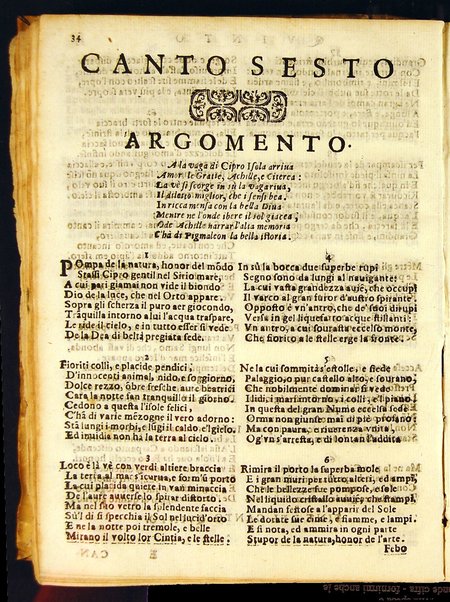 34
CANTO SESTO
ARGOMENTO.
A la vaga di Cipro Isola arriua
Amor, le Gratie, Achille, e Citerea:
La vè si scorge in sù la vaga riua,
Il dilano miglior, che i sensi bea.
In ricca mensa con la bella Diua
Mentre ne l'onde ibere il sol giacea,
Ode Achille narrar l'alta memoria
C'hà di Pigmaleon la bella istoria.
1
POmpa de la natura, honor del mõdo
Stassi Cipro gentil nel Sirio mare;
A cui pari giamai non vide il biondo
Dio de la luce, che nel Orto appare.
Sopra gli scherza il puro aer giocondo,
Trãquilla intorno a lui l'acqua traspare,
Le ride il cielo, e in tutto esser si vede
De la Dea di beltà pregiata sede.
2
Fioriti colli, e placide pendici,
D'innocenti animal, nido, e soggiorno,
Dolce rezzo, ombre fresche, aure beatrici
Cara la notte fan tranquillo il giorno.
Cedono a questa l'isole felici,
C'hà di varie mezogne il vero adorno:
Stà lungi i morbi, e lũgi il caldo e'l gielo.
Ed inuidia non hà la terra al cielo.
3
Loco è là vè con verdi altiere braccia
La terra al mar s'icurua, e form'il porto
La cui placida quiete in van minaccia
De l'aure auuerse lo spirar distorto,
Ma nel suo vetro la splendente faccia
Sù'l dì si specchia il Sol nel lucid'orto
E ne la notte poi tremole, e belle
Mirano il volto lor Cintia, e le stelle.
4
In sù la bocca due superbe rupi
Segno sono da lungi al nauigante:
La cui vasta grandezza auiẽ, che occupi
Il varco al gran furor d'austro spirante.
Opposto è vn'antro, che de' suoi dirupi
Versa in gel liquefatto acque stillanti:
Vn antro, a cui sourasta eccelso monte,
Che fiorito a le stelle erge la fronte.
5
Ne la cui sommità s'estolle, e siede
Palaggio, o pur castello alto, e sourano,
Che nobilmente dominar si vede
I lidi, i mari intorno, i colli, e'l piano.
In questa del gran Nume eccelsa sede
Orma non giunse mai di piè profano:
Ma con paura, e riuerenza vnita,
Ogn'vn s'arresta, e di lontan l'addita
6
Rimira il porto la superba mole
E i gran muri per tutto alteri, ed ampi,
Che le bellezze sue pompose, e sole
Nel liquido cristallo auiẽ, che stampi,
Mandan festose a l'apparir del Sole
Le dorate sue cime, e fiamme, e lampi.
E si nota, ed ammira in ogni parte
Stupor de la natura, honor de l'arte.
Febo